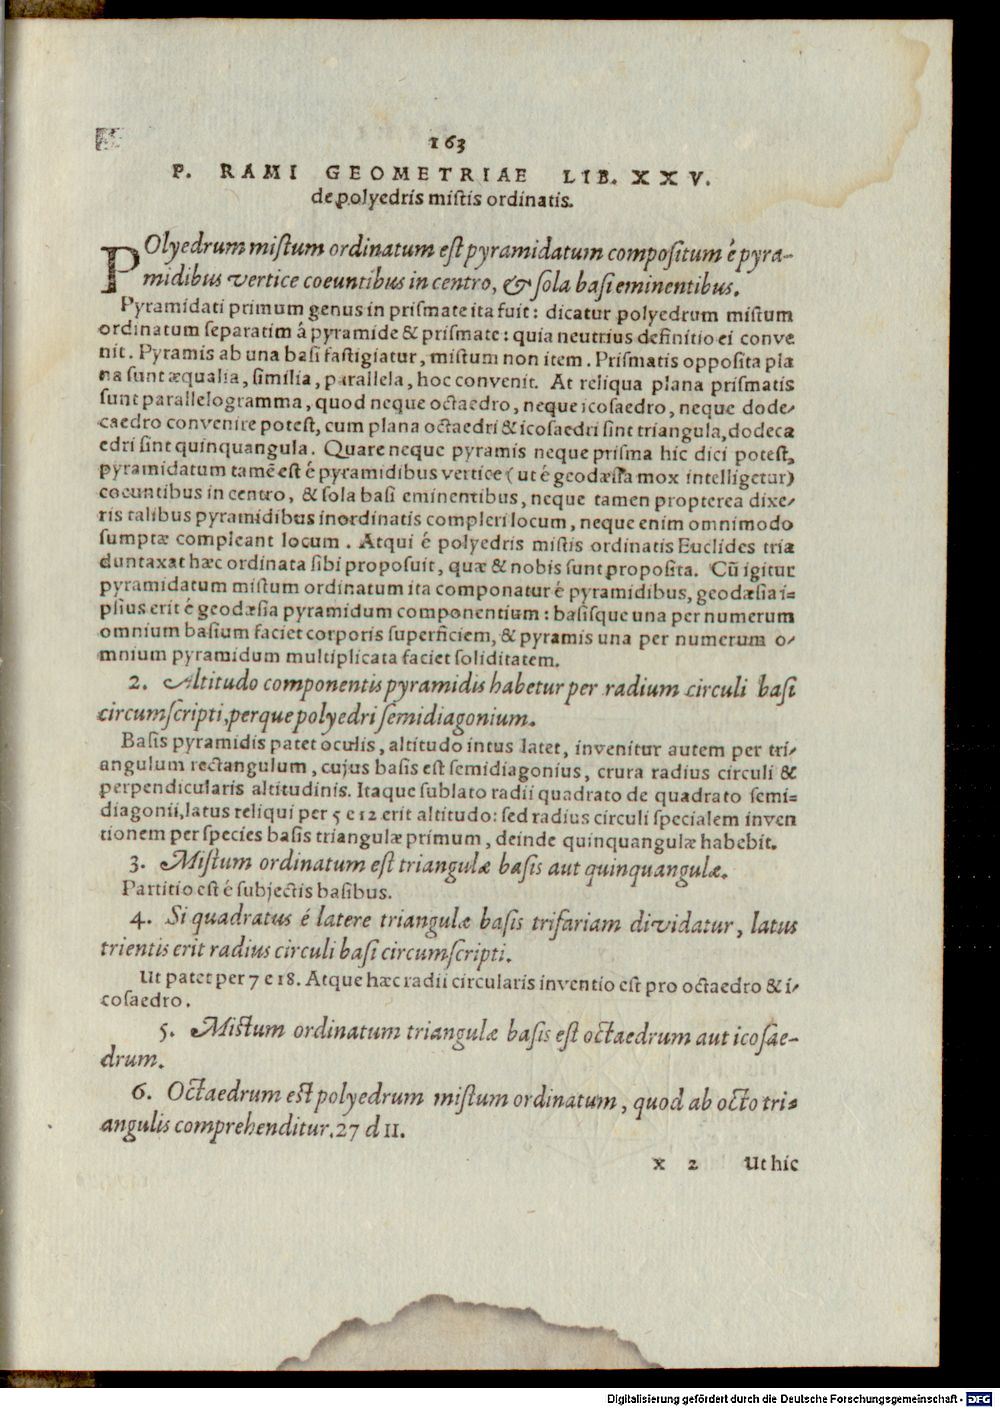 163
P. RAMI GEOMETRIAE LIB. XXV.
de polyedris mistis ordinatis.
POlyedrum mistum ordinatum est pyramidatum compositum é pyra-
midibus vertice coeuntibus in centro, & sola basi eminentibus.
Pyramidati primum genus in prismate ita fuit: dicatur polyedrum mistum
ordinatum separatim á pyramide & prismate: quia neutrius definitio ei conve
nit. Pyramis ab una basi fastigiatur, mistum non item. Prismatis opposita pla
na sunt æqualia, similia, parallela, hoc convenit. At reliqua plana prismatis
sunt parallelogramma, quod neque octaedro, neque icosaedro, neque dode-
caedro convenire potest, cum plana octaedri & icosaedri sint triangula, dodeca
edri sint quinquangula. Quare neque pyramis neque prisma hic dici potest,
pyramidatum tamē est é pyramidibus vertice (ut é geodæsia mox intelligetur)
coeuntibus in centro, & sola basi eminentibus, neque tamen propterea dixe-
ris talibus pyramidibus inordinatis compleri locum, neque enim omnimodo
sumptæ compleant locum. Atqui é polyedris mistis ordinatis Euclides tria
duntaxat hæc ordinata sibi proposuit, quæ & nobis sunt proposita. Cū igitur
pyramidatum mistum ordinatum ita componatur é pyramidibus, geodæsia i=
psius erit é geodæsia pyramidum componentium: basisque una per numerum
omnium basium faciet corporis superficiem, & pyramis una per numerum o-
mnium pyramidum multiplicata faciet soliditatem.
2. Altitudo componentis pyramidis habetur per radium circuli basi
circumscripti, perque polyedri semidiagonium.
Basis pyramidis patet oculis, altitudo intus latet, invenitur autem per tri-
angulum rectangulum, cujus basis est semidiagonius, crura radius circuli &
perpendicularis altitudinis. Itaque sublato radii quadrato de quadrato semi=
diagonii, latus reliqui per 5 e 12 erit altitudo: sed radius circuli specialem inven
tionem per species basis triangulæ primum, deinde quinquangulæ habebit.
3. Mistum ordinatum est triangulæ basis aut quinquangulæ.
Partitio est é subjectis basibus.
4. Si quadratus é latere triangulæ basis trifariam dividatur, latus
trientis erit radius circuli basi circumscripti.
Ut patet per 7 e 18. Atque hæc radii circularis inventio est pro octaedro & i-
cosaedro.
5. Mistum ordinatum triangulæ basis est octaedrum aut icosae-
drum.
6. Octaedrum est polyedrum mistum ordinatum, quod ab octo tri-
angulis comprehenditur. 27 d 11.
x 2 Ut hic
Digitalisierung gefördert durch die Deutsche Forschungsgemeinschaft - DFG